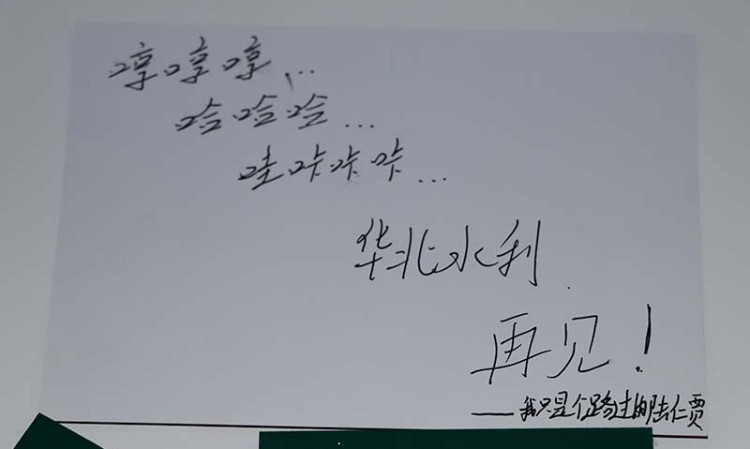 哼哼哼...
哈哈哈...
哇咔咔咔...
华北水利
再见!
——我只是个路过的陆仁贾